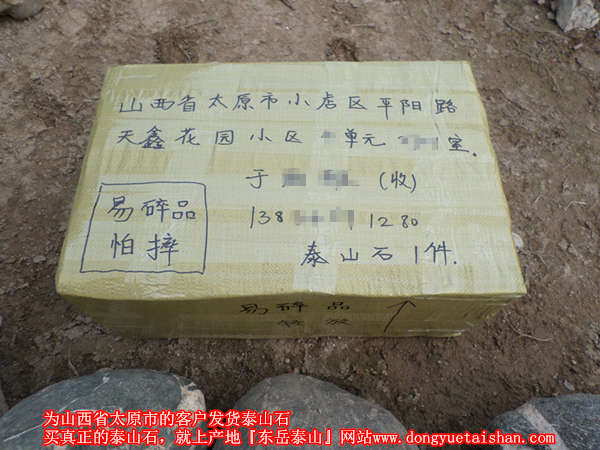 山西省太原市小店区平阳路
天鑫花园小区 单元 室.
于 (收)
138 1280
泰山石1件.
易碎品
怕摔
易碎品
为山西省太原市的客户发货泰山石
买真正的泰山石，就上产地『东岳泰山』网站www.dongyuetaishan.com